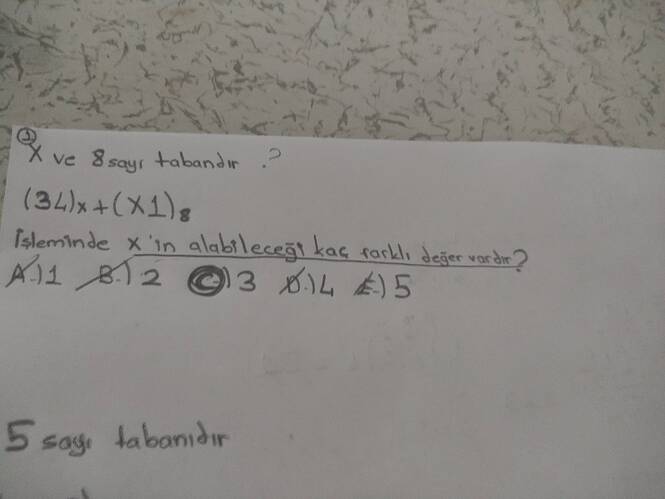 3
X ve 8 sayı tabandır .?
(34)x+(X1)8
işleminde x'in alabileceği kaç farklı değer vardır?
A.)1 B.)2 C.)3 D.)4 E.)5
5 sayı tabanıdır